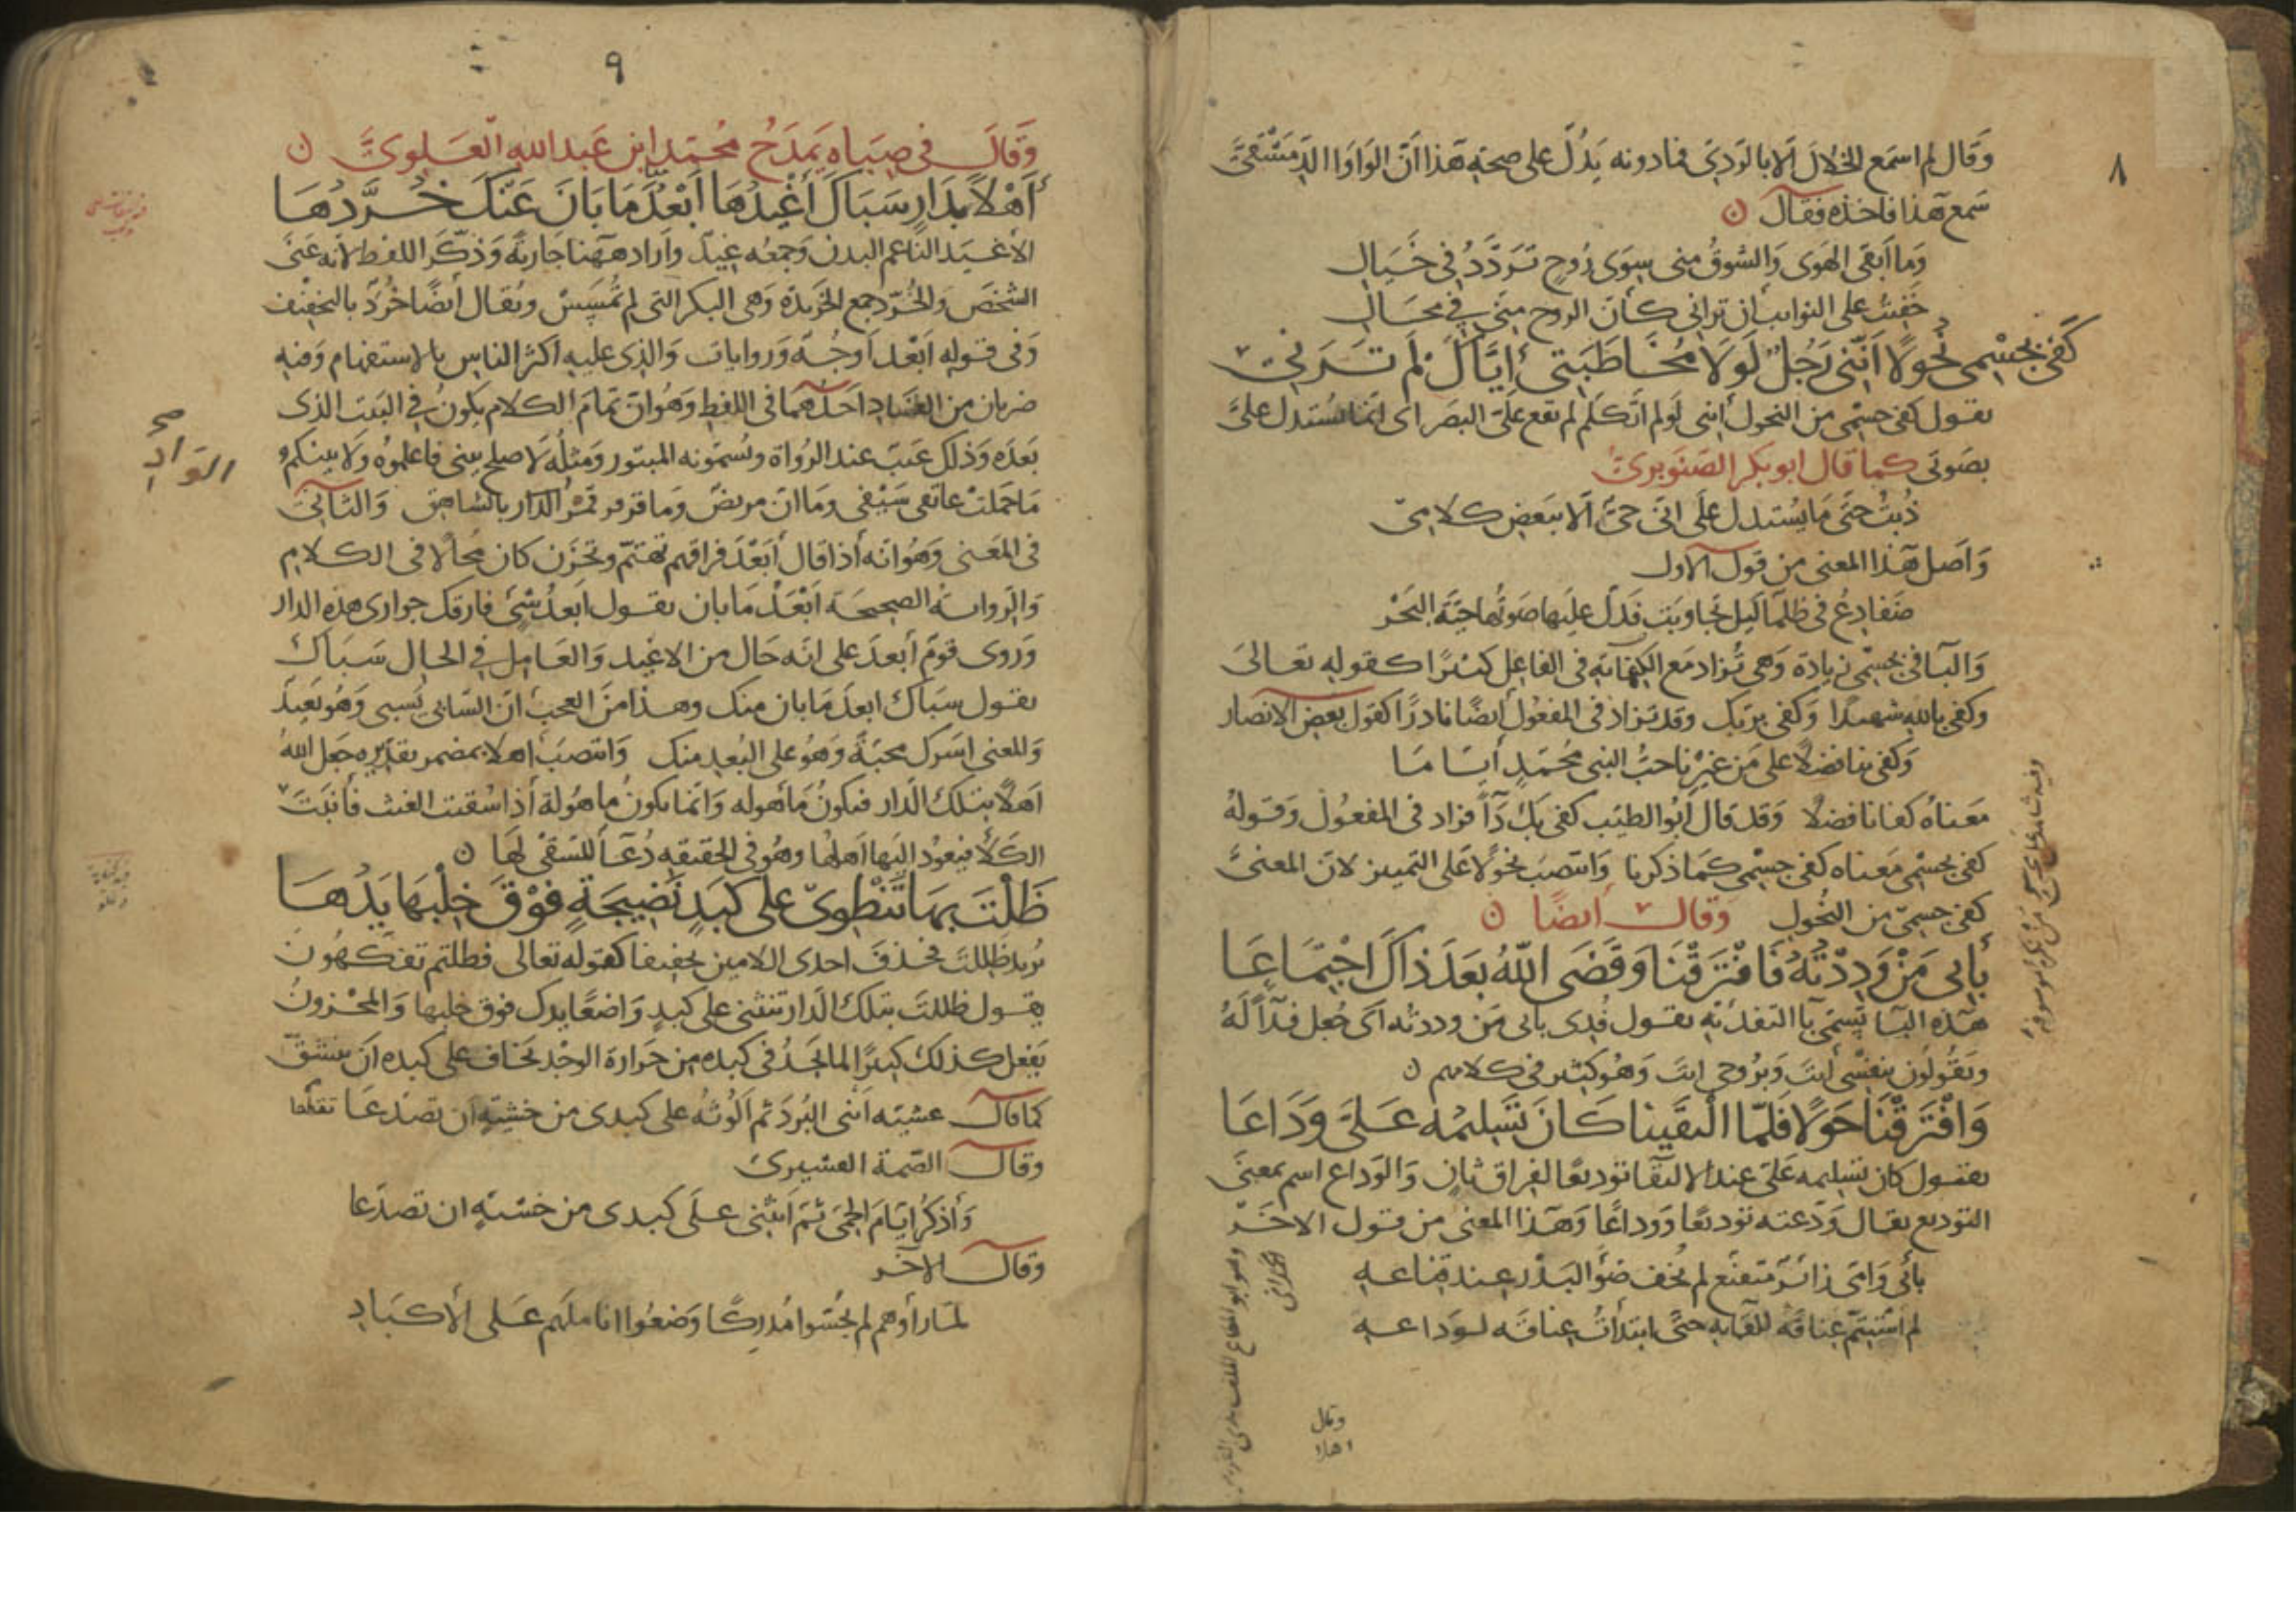 ٨
وَقَال لم اسمَع الخلالَ الا بالرَدِىّ فما دونه يَدُلّ على صحة هَذا انّ الوَاوَا الدِمَشْقىَّ
سَمع هَذا فاخذه فقال
وَما اَبقَى الهَوى وَالشوقُ مِنى سِوَى رُوحٍ تردَّدُ فى خَيَالِ
خَفِيتُ على النوائب ان ترانى كانّ الروح مِنّى فى مُحَالِ
كَفى بجسْمى نُحُولاً اَنَّنى رَجُلٌ لَولَا مُخَاطَبَتى اِيَّاكَ لَم تَرَنِى
يقول كفى جِسْمى من النحول اننى لَو لم اتكلّم لم يقع عَلىَّ البصَر اى انما يُستدل علىَّ
بصَوتى كما قال ابو بكر الصَنَوبرىُّ
ذُبتُ حتى مَا يُستدل عَلَى انى حَىٌّ الا ببَعضِ كلامى
وَاصل هَذا المعنى من قول الاول
ضفادعُ فى ظلمَا لَيلٍ تجاوبَت فدلّ عليها صَوتُها حيّة البَحْر
وَالبَا فى بجسْمى زيادة وَهى تُزاد مَع الكفاية فى الفاعل كثيرًا كقوله تعالى
وكفى بالله شهيدًا وَكفى بربك وقد تزاد فى المفعُول ايضًا نادرًا كقول بعض الانصار
وَكفى بنا فضلاً على مَن غيرنا حبُّ النبى مُحَمّدٍ اِيّانا
مَعناهُ كفانا فضلا وَقد قال اَبُو الطيّب كفى بك دَآءً فزاد فى المفعُول وَقَوله
كفى بجسْمى مَعناه كفى جسْمى كمَا ذكرنا وَانتصَبَ نحُولًا عَلى التمييز لانّ المعنى
كفى جسمى من النُحُول وقال ايضًا
بِاَبى مَنْ وَدِدْتُهُ فَافْتَرَقْنَا وَقَضَى اللّهُ بَعدَ ذاكَ اجْتِمَاعَا
هَذه البَا تُسمّى بَا التفدية يقول فُدِى بابى مَن وددته اى جُعل فدآً لَهُ
ويَقُولون بنفسْى انتَ وَبرُوحى انتَ وَهُو كثير فى كلامهم
وَافْتَرَقْنَا حَوْلًا فَلَمّا الْتقَينا كَانَ تَسْليمُهُ عَلَىَّ وَدَاعَا
يقول كان تسليمه عَلىّ عند الالتقا توديعًا لفراق ثانٍ وَالوَداع اسم بمعنى
التوديع يقال وَدّعته توديعًا وَوداعًا وَهَذا المعنى من قول الاخَر
بابى وَامى زائرٌ متقنّع لم يُخفِ ضوُ البَدْر عِند قِناعهِ
لم اسْتَتِمّ عِناقَه للقآئه حَتى ابتدأتُ عِناقه لوَداعهِ
وقال
اهلا
٩
وَقَالَ فى صِبَاه يَمدَحُ مُحمّد ابن عَبد الله العَلوىَّ
اَهْلاً بدَارٍ سَبَاكَ اَغْيدُهَا اَبْعَدُ مَا بَانَ عَنْكَ خُرَّدُهَا
الاغيَد الناعم البدن وَجمعُه غِيد وَاَراد ههنا جَارية وَذكّر اللفظ لانه عَنَى
الشخصَ وَالخُرّد جمع الخَريدة وَهى البكر التى لم تُمْسَسْ ويُقال اَيضًا خُرُدٌ بالتخفيف
وَفى قوله اَبْعَد اَوجُه وَروايات وَالذى عليه اكثر الناس بالاستفهام وَفيه
ضربان من الفساد احدُهما فى اللفظ وَهُو ان تمامَ الكلام يكونُ فى البَيت الذى
بَعدَه وَذلك عَيبٌ عند الرُواة ويُسمّونه المبتور وَمثلُه لَا صلح بينى فاعلموُه وَلا بينكم
مَا حَملتْ عاتقى سَيْفى وَما ان مريضٌ وَما قرقر قمرُ الواد بالشاهق وَالثانى
الوَادِ صح
فى المَعنى وَهُو انه اذا قال اَبَعْدَ فراقهم تهتمّ وتحزَن كان مُحالًا فى الكلام
وَالرّواية الصحيحَة اَبْعَدُ مَا بان يقول اَبعدُ شَىْءٍ فارقك جوارى هذه الدار
وَروى قومٌ اَبعدَ على انه حَال من الاغيد وَالعَامِل فى الحال سَبَاك
يقول سبَاك ابعدَ مَا بان منك وهذا منَ العجب انّ السَابى يُسبى وَهُو بَعيدٌ
وَالمعنى اسَرك محبّةً وَهُو على البُعد منك وَانتصَبَ اهلا بمضمر تقديره جَعل اللهُ
اَهلًا بتلك الدار فتكونُ مَاهوله وَانما تكونُ ماهُولة اذا سُقيت الغيث فاَنبتَ
الكَلأ فيعُود اليهَا اَهلُها وهُو فى الحقيقه دُعَآ للسَقْى لهَا
ظَلْتَ بِهَا تَنْطَوِى عَلَى كَبَدٍ نَضِيجَةٍ فَوْقَ خِلْبِهَا يَدُهَا
يُريد ظَلِلتَ فحذفَ احدى اللامين تخفيفا كقوله تعالى فظلتم تفكّهُون
يقول ظللتَ بتلك الدار تنثنى على كبدٍ وَاضعًا يدك فوق خلبها وَالمحْزون
يَفعل كذلك كثيرًا لما يجدُ فى كبده من حَرارة الوجْد يخاف على كبده ان ينشقّ
كما قال عشيّه اثنى البُردَ ثم اَلُوثُه على كبدى من خشيةٍ ان تصدّعَا تقطعا
وقال الصّمة القشيرى
وَأذكُر ايّامَ الحِمَى ثمّ انثنى عَلَى كبدى من خشيةٍ ان تصدّعا
وقال الاخَر
لمّا رأوهم لم يُحِسّوا مُدرِكًا وَضعُوا اناملهم عَلى الأكبَادِ